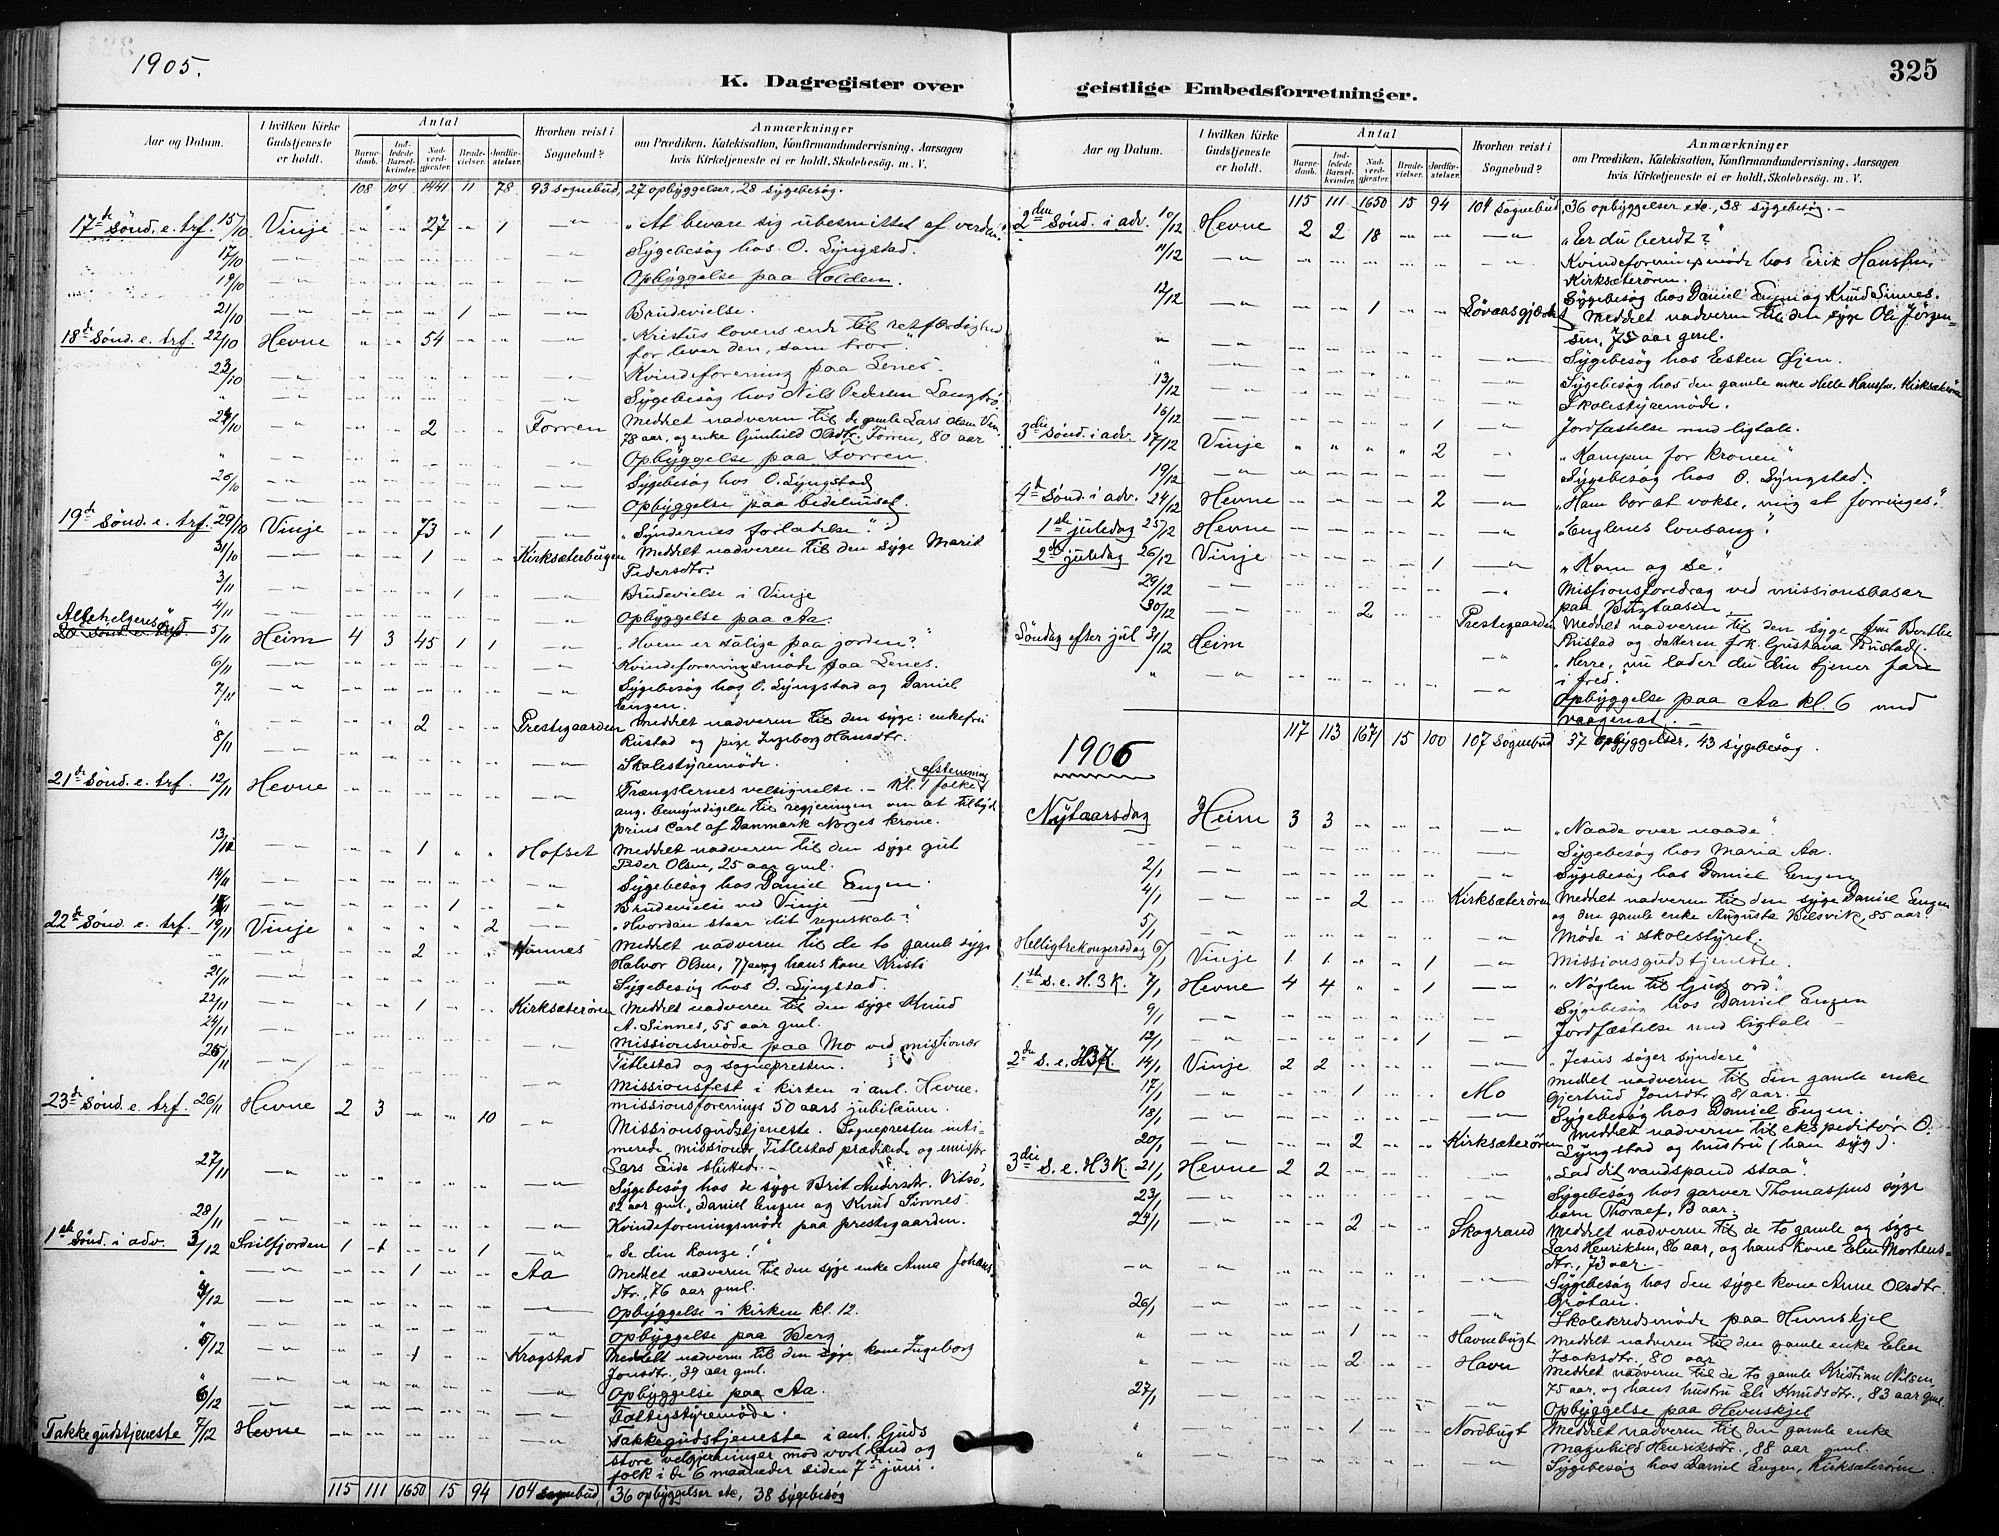 1905.
325
K. Dagregister over geistlige Embedsforretninger.
Aar og Datum.
I hvilken Kirke Gudstjeneste er holdt.
Antal
Barnedaab.
Indledede Barselkvinder.
Nadverdgjester.
Brudevielser.
Jordfæstelser.
Hvorhen reist i Sognebud?
Anmærkninger
om Prædiken, Katekisation, Konfirmandundervisning, Aarsagen
hvis Kirketjeneste ei er holdt, Skolebesøg. m. V.
108 104 1441 11 78 93 sognebud, 27 opbyggelser, 28 sygebesøg.
17de Sønd. e. trf. 15/10 Vinje " " 27 " 1 " „At bevare sig ubesmittet af verden"
17/10 Sygebesøg hos O. Lyngstad.
19/10 Opbyggelse paa Holden.
21/10 1 Brudevielse.
18de Sønd. e. trf. 22/10 Hevne " " 54 „Kristus lovens ende til retfærdighed
for hver den, som tror"
23/10 Kvindeforening paa Lenes.
" Sygebesøg hos Nils Pedersen
24/10 2 Forren Meddelt nadveren til de gamle Lars Olsen
78 aar, og enke Gunhild Olsdtr. Forren, 80 aar
" Opbyggelse paa Forren.
26/10 Sygebesøg hos O. Lyngstad
" Opbyggelse paa bedehuset
19de Sønd. e. trf. 29/10 Vinje " " 73 " 1 „Syndernes forladelse".
31/10 1 Kirksæterbugen Meddelt nadveren til den syge Marit
Pedersdtr.
3/11 1 Brudevielse i Vinje
4/11 Opbyggelse paa Aa.
Allehelgenssønd.
20 Sønd. e. trf. 5/11 Heim 4 3 45 1 1 „Hvem er salige paa jorden?"
6/11 Kvindeforeningsmøde paa Lenes.
7/11 Sygebesøg hos O. Lyngstad og Daniel
Engen.
" 2 Prestegaarden Meddelt nadveren til den syge: enkefru
Rustad og pige Ingeborg Hansdtr.
8/11 Skolestyremøde.
21de Sønd. e. trf. 12/11 Hevne Trængslernes velsignelse. – Kl. 1 folkeafstemning
ang. bemyndigelse til regjeringen om at tilbyde
prins Carl af Danmark Norges krone.
13/11 1 Hofset Meddelt nadveren til den syge gut
Peder Olsen, 25 aar gml.
14/11 Sygebesøg hos Daniel Engen.
1 Brudevielse ved Vinje
22de Sønd. e. trf. 19/11 Vinje 2 „Hvordan staar dit regnskab?"
" 2 Meddelt nadveren til de to gamle syge
Halvor Olsen, 77 og hans kone Kristi
21/11 Sygebesøg hos O. Lyngstad.
22/11 1 Kirksæterøren Meddelt nadveren til den syge Knud
A. Sinnes, 55 aar gml.
24/11 Missionsmøde paa Mo ved missionær
Titlestad og sognepresten.
25/11 Missionsfest i kirken i anl. Hevne
missionsforenings 50 aars jubilæum.
23de Sønd. e. trf. 26/11 Hevne 2 3 " " 10 Missionsgudstjeneste. Sognepresten inti-
merede, missionær Titlestad prædikede og emissær
Lars Eide sluttede.
27/11 Sygebesøg hos de syge Brit Andersdtr.
82 aar gml., Daniel Engen og Knud Sinnes.
28/11 Kvindeforeningsmøde paa prestegaarden.
1ste Sønd. i adv. 3/12 Snilfjorden 1 1 1 „Se din konge!"
" 1 Aa Meddelt nadveren til den syge enke Anna Johans-
dtr., 76 aar gml.
4/12 Opbyggelse i kirken kl. 12.
" Opbyggelse paa Berg
5/12 1 Krogstad Meddelt nadveren til den syge kone Ingeborg
Jonsdtr., 39 aar gml.
" Opbyggelse paa Aa.
6/12 Fattigstyremøde.
Takkegudstjeneste 7/12 Hevne Takkegudstjeneste i anl. Guds
store velgjerninger mod vort land og
folk i de 6 maaneder siden 7de juni.
115 111 1650 15 94 104 sognebud 36 opbyggelser etc, 38 sygebesøg
Aar og Datum.
I hvilken Kirke Gudstjeneste er holdt.
Antal
Barnedaab.
Indledede Barselkvinder.
Nadverdgjester.
Brudevielser.
Jordfæstelser.
Hvorhen reist i Sognebud?
Anmærkninger
om Prædiken, Katekisation, Konfirmandundervisning, Aarsagen
hvis Kirketjeneste ei er holdt, Skolebesøg. m. V.
115 111 1650 15 94 104 sognebud, 36 opbyggelser etc., 38 sygebesøg. –
2den Sønd. i adv. 10/12 Hevne 2 2 18 „Er du beredt?"
11/12 Kvindeforeningsmøde hos Erik Hanssen,
Kirksæterøren.
12/12 Sygebesøg hos Daniel Engen og Knud Sinnes.
1 Meddelt nadveren til den syge Ole Jørgen-
sen, 75 aar gml.
" Sygebesøg hos Esten Øyen.
13/12 Sygebesøg hos den gamle enke Helle Hanssen, Kirksæterøren
Skolestyremøde.
16/12 1 Jordfæstelse med ligtale.
3die Sønd. i adv. 17/12 Vinje 2 „Kampen for kronen"
19/12 Sygebesøg hos O. Lyngstad.
4de Sønd. i adv. 24/12 Hevne 2 „Ham bør at vokse, mig at forringes."
1ste juledag 25/12 Hevne „Englenes lovsang."
2de juledag 26/12 Vinje 1 „Kom og se."
29/12 Missionsforedrag ved missionsbasar
paa
30/12 2 Prestegaarden Meddelt nadveren til den syge fru Borthe
Rustad og datteren frk. Gustava Rustad.
Søndag efter jul 31/12 Heim „Herre, nu lader du din tjener fare
i fred."
" Opbyggelse paa Aa kl. 6 med
117 113 1671 15 100 107 sognebud 37 opbyggelser, 43 sygebesøg.
1906
Nytaarsdag Heim 3 3 „Naade over naade".
Sygebesøg hos Maria Aa.
2/1 Sygebesøg hos Daniel Engen
4/1 2 Kirksæterøren Meddelt nadveren til den syge Daniel Engen
og den gamle enke Auguste Bilsvik, 85 aar.
5/1 Møde i skolestyret.
Helligtrekongersdag 6/1 Vinje 1 1 1 Missionsgudstjeneste.
1ste S. e. H. 3 K. 7/1 Hevne 4 4 " " 1 „Nøglen til Guds ord".
9/1 Sygebesøg hos Daniel Engen
12/1 1 Jordfæstelse med ligtale –
2den S. e. H3K. 14/1 Vinje 2 2 „Jesus søger syndere"
17/1 1 Mo Meddelt nadveren til den gamle enke
Gjertrud Jonsdtr., 81 aar.
18/1 Sygebesøg hos Daniel Engen.
20/1 2 Kirksæterøren Meddelt nadveren til ekspeditør O.
Lyngstad og hustru (han syg).
3die S. e. H3K. 21/1 Hevne 2 2 „Lad dit vandspand staa".
23/1 Sygebesøg hos garver Thomassens syge
barn
24/1 2 Skogrand Meddelt nadveren til de to gamle og syge
Lars Henriksen, 86 aar, og hans kone Elen Mortens-
dtr., 73 aar
" Sygebesøg hos den syge kone Anne Olsdtr.
Grøtan.
26/1 Skolekredsmøde paa Hemskjel
" 1 Havnebugt Meddelt nadveren til den gamle enke Elen
Isaksdtr., 80 aar
" 2 Havn Meddelt nadveren til de to gamle Kristian Nilsen
75 aar, og hans hustru Eli Knudsdtr., 83 aar gml.
27/1 Opbyggelse paa Hemskjel
" 1 Nordbugt Meddelt nadveren til den gamle enke
Magnhild Henriksdtr., 88 aar gml.
Sygebesøg hos Daniel Engen, Kirksæterøren.